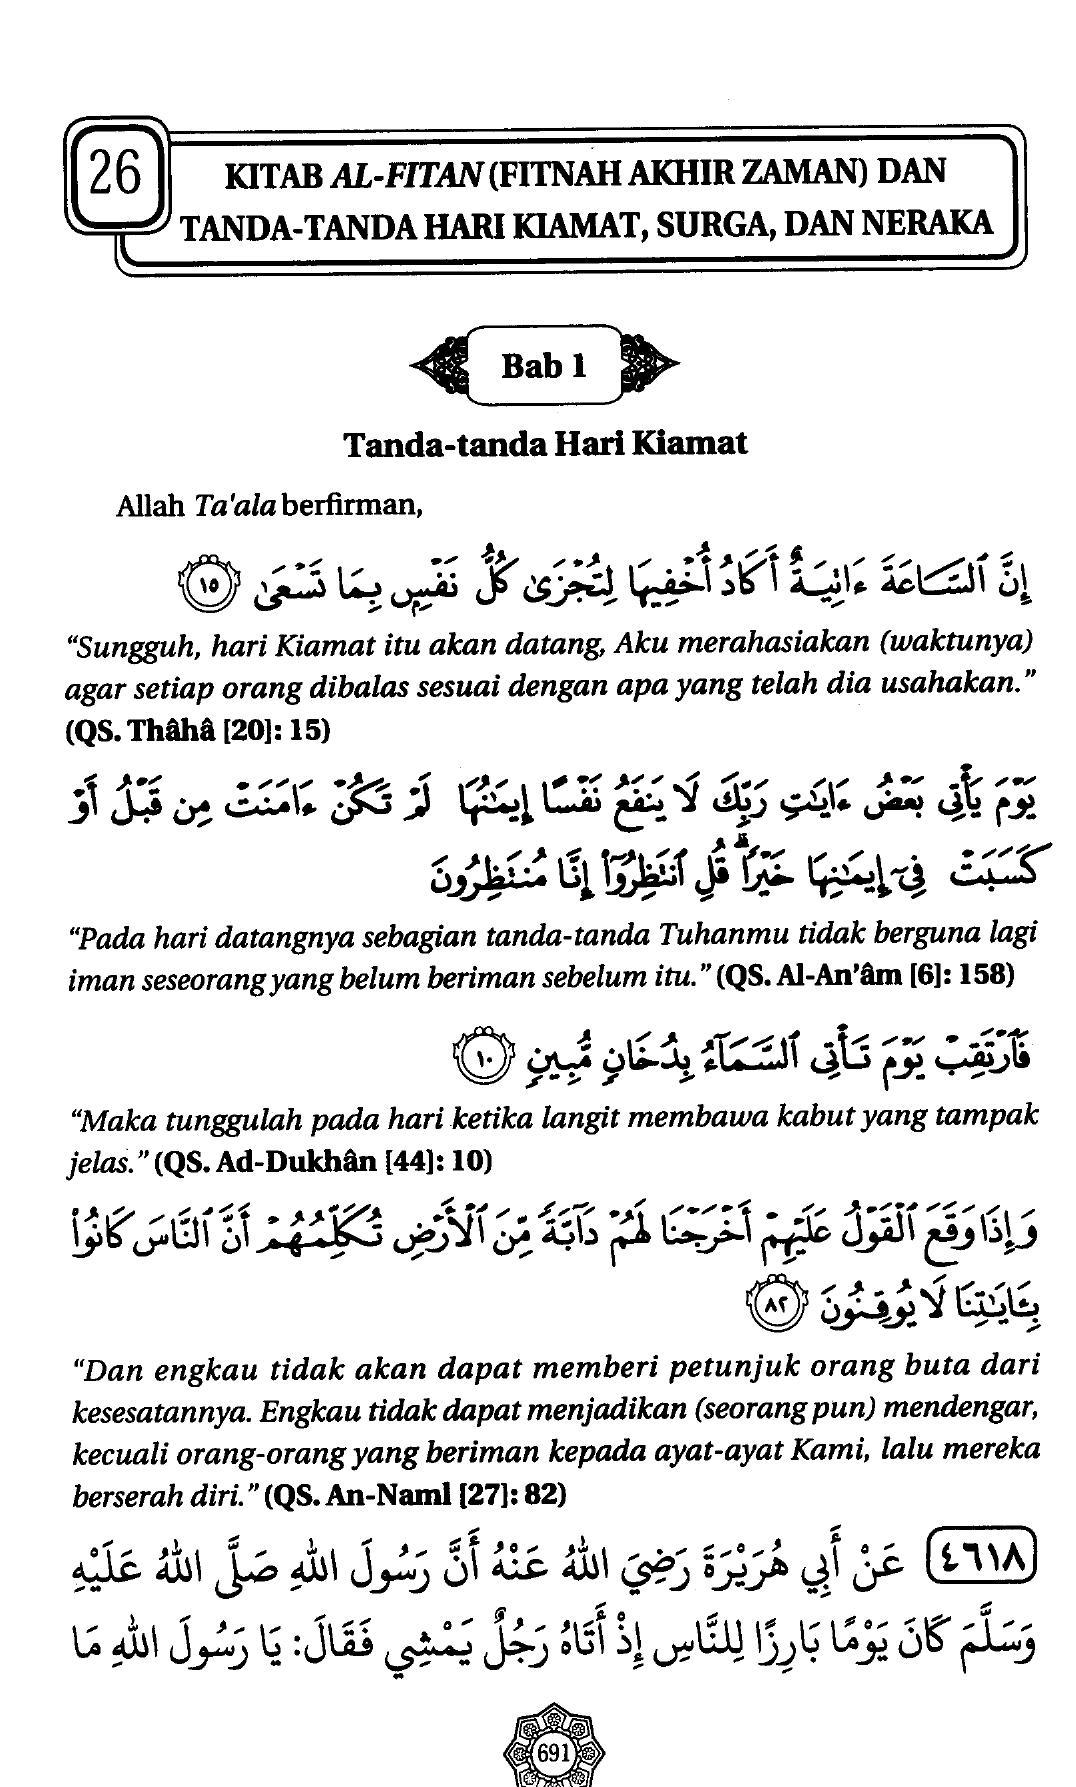 26
KITAB AL-FITAN (FITNAH AKHIR ZAMAN) DAN
TANDA-TANDA HARI KIAMAT, SURGA, DAN NERAKA
Bab 1
Tanda-tanda Hari Kiamat
Allah Ta'ala berfirman,
إِنَّ ٱلسَّاعَةَ ءَاتِيَةٌ أَكَادُ أُخْفِيهَا لِتُجْزَىٰ كُلُّ نَفْسٍۭ بِمَا تَسْعَىٰ ١٥
“Sungguh, hari Kiamat itu akan datang, Aku merahasiakan (waktunya)
agar setiap orang dibalas sesuai dengan apa yang telah dia usahakan.”
(QS. Thâhâ [20]: 15)
يَوْمَ يَأْتِى بَعْضُ ءَايَٰتِ رَبِّكَ لَا يَنفَعُ نَفْسًا إِيمَٰنُهَا لَمْ تَكُنْ ءَامَنَتْ مِن قَبْلُ أَوْ
كَسَبَتْ فِىٓ إِيمَٰنِهَا خَيْرًا ۗ قُلِ ٱنتَظِرُوٓا۟ إِنَّا مُنتَظِرُونَ
“Pada hari datangnya sebagian tanda-tanda Tuhanmu tidak berguna lagi
iman seseorang yang belum beriman sebelum itu.” (QS. Al-An’âm [6]: 158)
فَٱرْتَقِبْ يَوْمَ تَأْتِى ٱلسَّمَآءُ بِدُخَانٍ مُّبِينٍ ١٠
“Maka tunggulah pada hari ketika langit membawa kabut yang tampak
jelas.” (QS. Ad-Dukhân [44]: 10)
وَإِذَا وَقَعَ ٱلْقَوْلُ عَلَيْهِمْ أَخْرَجْنَا لَهُمْ دَآبَّةً مِّنَ ٱلْأَرْضِ تُكَلِّمُهُمْ أَنَّ ٱلنَّاسَ كَانُوا۟
بِـَٔايَٰتِنَا لَا يُوقِنُونَ ٨٢
“Dan engkau tidak akan dapat memberi petunjuk orang buta dari
kesesatannya. Engkau tidak dapat menjadikan (seorang pun) mendengar,
kecuali orang-orang yang beriman kepada ayat-ayat Kami, lalu mereka
berserah diri.” (QS. An-Naml [27]: 82)
٤٦١٨ عَنْ أَبِي هُرَيْرَةَ رَضِيَ اللهُ عَنْهُ أَنَّ رَسُولَ اللهِ صَلَّى اللهُ عَلَيْهِ
وَسَلَّمَ كَانَ يَوْمًا بَارِزًا لِلنَّاسِ إِذْ أَتَاهُ رَجُلٌ يَمْشِي فَقَالَ: يَا رَسُولَ اللهِ مَا
691